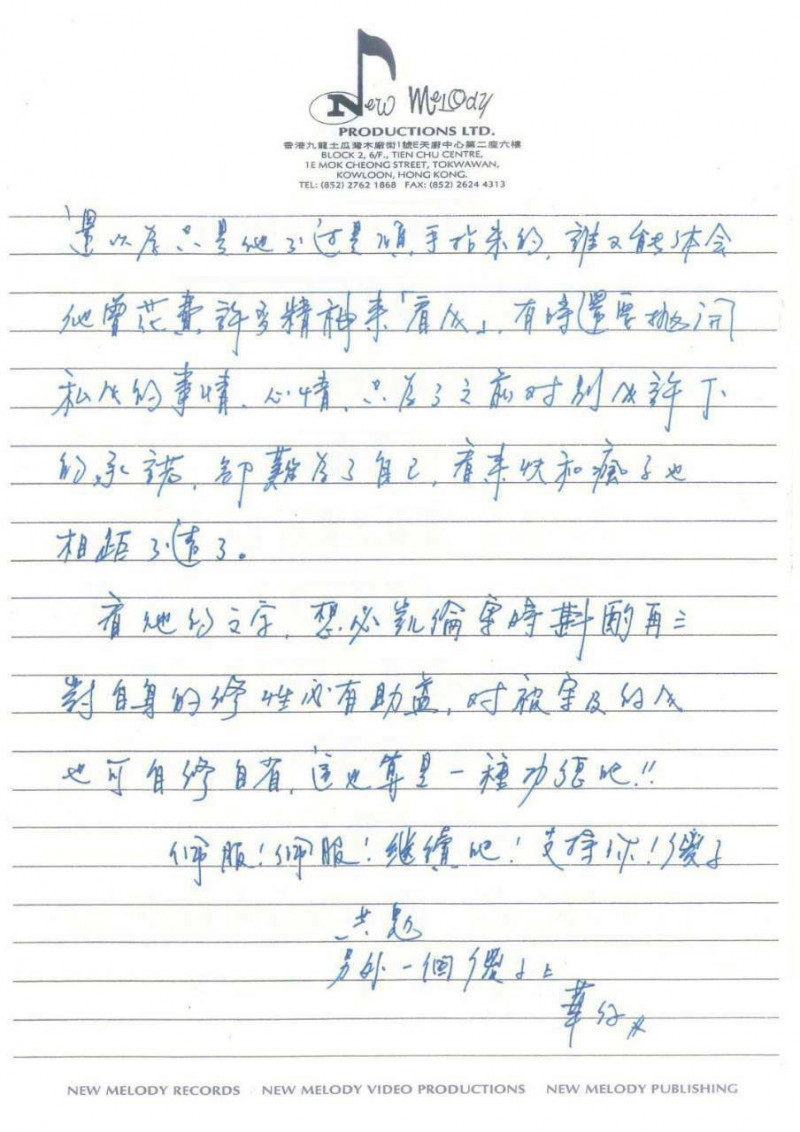 New Melody
PRODUCTIONS LTD.
香港九龍土瓜灣木廠街1號E天廚中心第二座六樓
BLOCK 2, 6/F., TIEN CHU CENTRE,
1E MOK CHEONG STREET, TOKWAWAN,
KOWLOON, HONG KONG.
TEL: (852) 2762 1868 FAX: (852) 2624 4313
還以為只是他不过是順手指来的,誰又能体会
他曾花費許多精神来「看人」,有時還要抛開
私人的事情、心情,只為了之前对別人許下
的承諾,卻難為了自己,看来快和瘋子也
相距不遠了。
看他的文字,想必凱倫寫時斟酌再三
對自身的修性必有助益,对被寫及的人
也可自修自省,這也算是一種功德吧!!
佩服!佩服!继續吧!支持你!傻子
共勉
另外一個傻子上
華仔
NEW MELODY RECORDS NEW MELODY VIDEO PRODUCTIONS NEW MELODY PUBLISHING